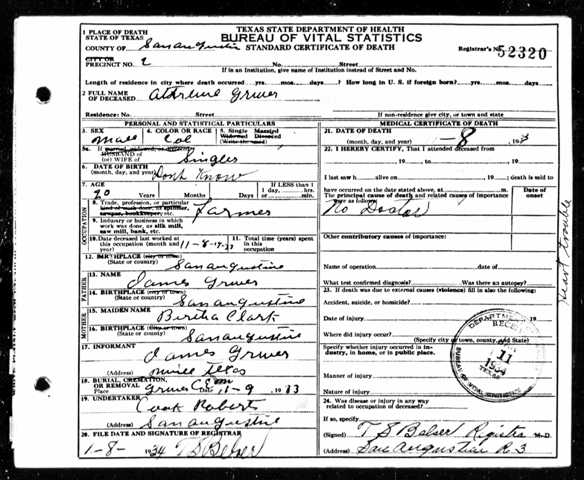 TEXAS STATE DEPARTMENT OF HEALTH
BUREAU OF VITAL STATISTICS
STANDARD CERTIFICATE OF DEATH
1 PLACE OF DEATH
STATE OF TEXAS
COUNTY OF San augustine
Registrar's No. 52320
CITY OR
PRECINCT NO. 2 No. Street
If in an Institution, give name of Institution instead of Street and No.
Length of residence in city where death occurred yrs. mos. days. How long in U. S. if foreign born? yrs. mos. days
2 FULL NAME
OF DECEASED
If non-residence give city, or town and state
PERSONAL AND STATISTICAL PARTICULARS
3. SEX 4. COLOR OR RACE 5. Single Married
Widowed Divorced
(Write the word)
male Col
5a. If married, widowed, or divorced
HUSBAND OF
(or) WIFE OF Single
6. DATE OF BIRTH
(month, day, and year) Dont Know
7. AGE IF LESS than
20 Years Months Days 1 day, hrs.
or min.
OCCUPATION
8. Trade, profession, or particular
kind of work done, as spinner,
sawyer, bookkeeper, etc. Farmer
9. Industry or business in which
work was done, as silk mill,
saw mill, bank, etc.
10. Date deceased last worked at
this occupation (month and year)
11. Total time (years) spent in this
occupation
12. BIRTHPLACE (city or town)
(State or country) San augustine
FATHER
13. NAME
James
14. BIRTHPLACE (city or town)
(State or country) San augustine
MOTHER
15. MAIDEN NAME
Bertha Clark
16. BIRTHPLACE (city or town)
(State or country) San augustine
17. INFORMANT
James
(Address) Texas
18. BURIAL, CREMATION,
OR REMOVAL
Cem Date 1-9 1933
19. UNDERTAKER
Cook Roberts
(Address) San augustine
20. FILE DATE AND SIGNATURE OF REGISTRAR
1-8- 1934 T S Belser
MEDICAL CERTIFICATE OF DEATH
21. DATE OF DEATH
(month, day, and year)
22. I HEREBY CERTIFY, That I attended deceased from
, 19 , to , 19
I last saw h alive on , 19 ; death is said to
have occurred on the date stated above, at m.
The principal cause of death and related causes of importance
were as follows: Date of
onset
No Doctor
Other contributory causes of importance:
Name of operation date of
What test confirmed diagnosis? Was there an autopsy?
23. If death was due to external causes (violence) fill in also the following:
Accident, suicide, or homicide?
Date of injury 19
Where did injury occur?
(Specify city or town, county, and State)
Specify whether injury occurred in industry, in home, or in public place.
Manner of injury
Nature of injury
24. Was disease or injury in any way
related to occupation of deceased?
If so, specify
(Signed) T S Belser Registra M. D.
(Address) San Augustine R 3
Heart trouble
11
1934
TEXAS